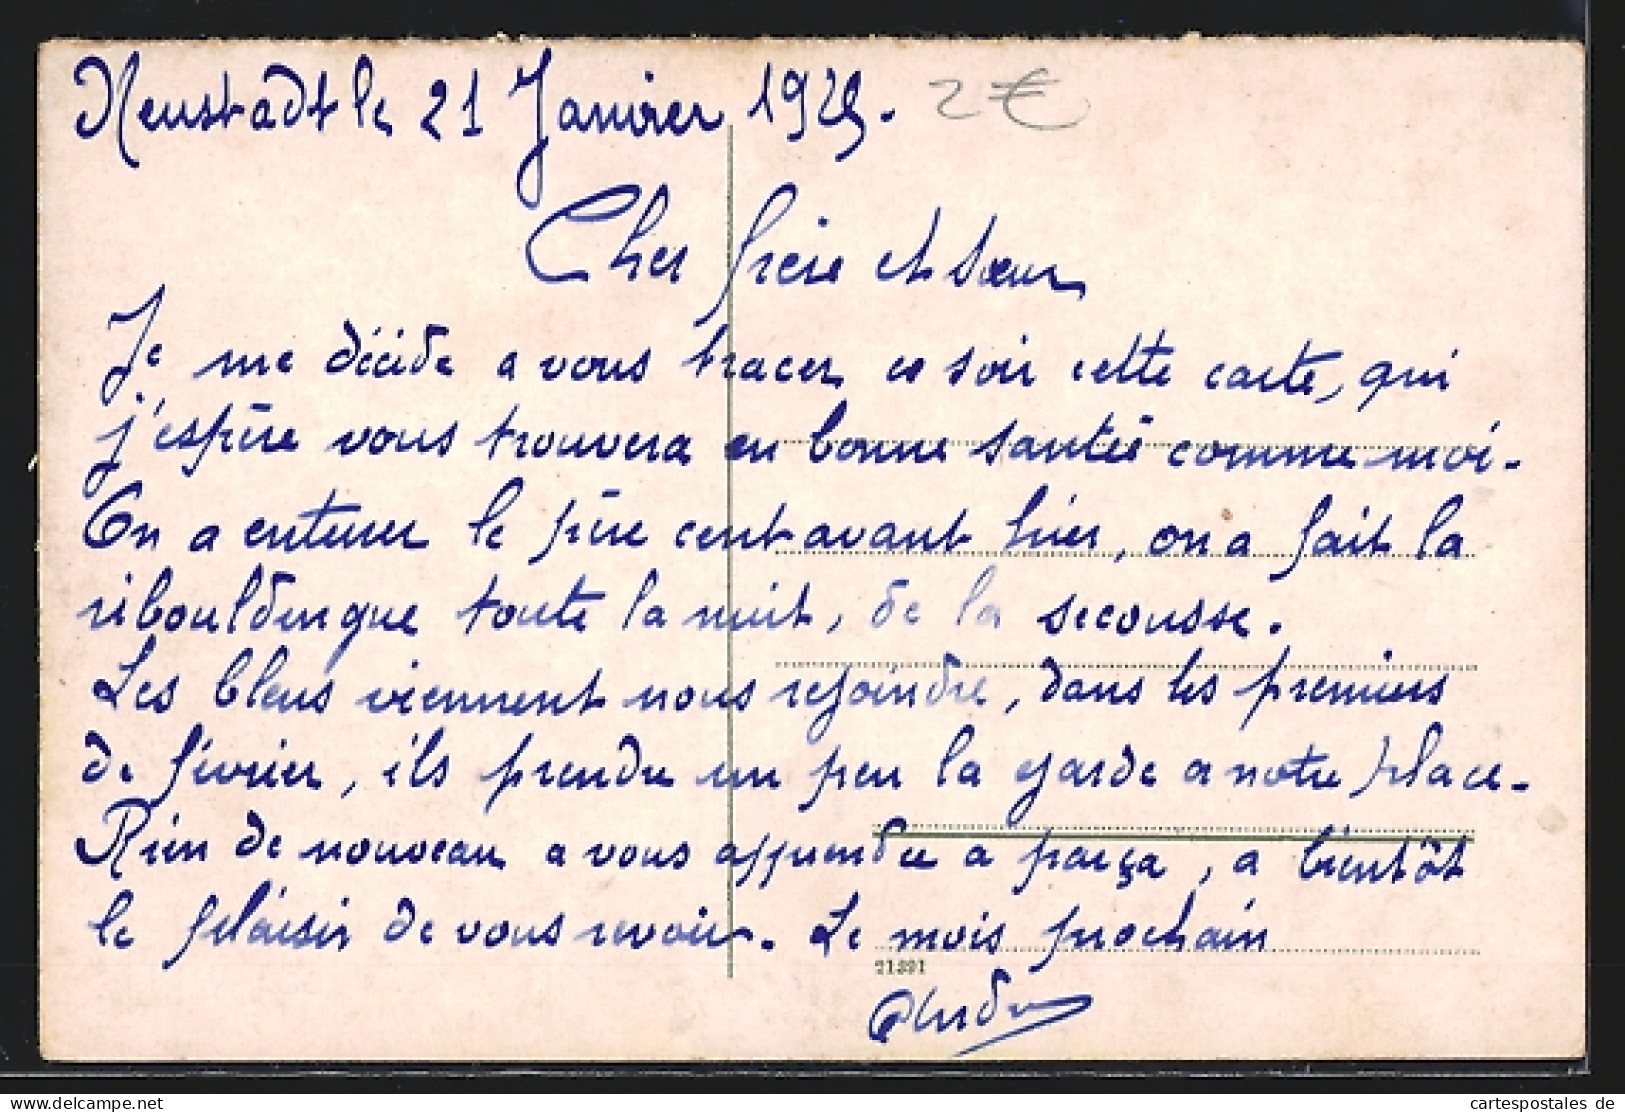 Neustadt le 21 Janvier 1925.
2 €
Cher frère et sœur
Je me décide a vous tracer ce soir cette carte, qui
j'espère vous trouvera en bonne santé comme moi.
On a enterrer le père cent avant hier, on a fait la
ribouldingue toute la nuit, de la secousse.
Les bleus viennent nous rejoindre, dans les premiers
de février, ils prendre un peu la garde a notre place.
Rien de nouveau a vous apprendre a par ça, a bientôt
le plaisir de vous revoir. Le mois prochain
21391
cartespostales.de